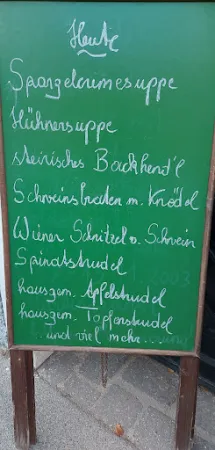 Heute
Spargelcremesuppe
Hühnersuppe
steirisches Backhend'l
Schweinsbraten m. Knödel
Wiener Schnitzel v. Schwein
Spinatstrudel
hausgem. Apfelstrudel
hausgem. Topfenstrudel
und viel mehr...